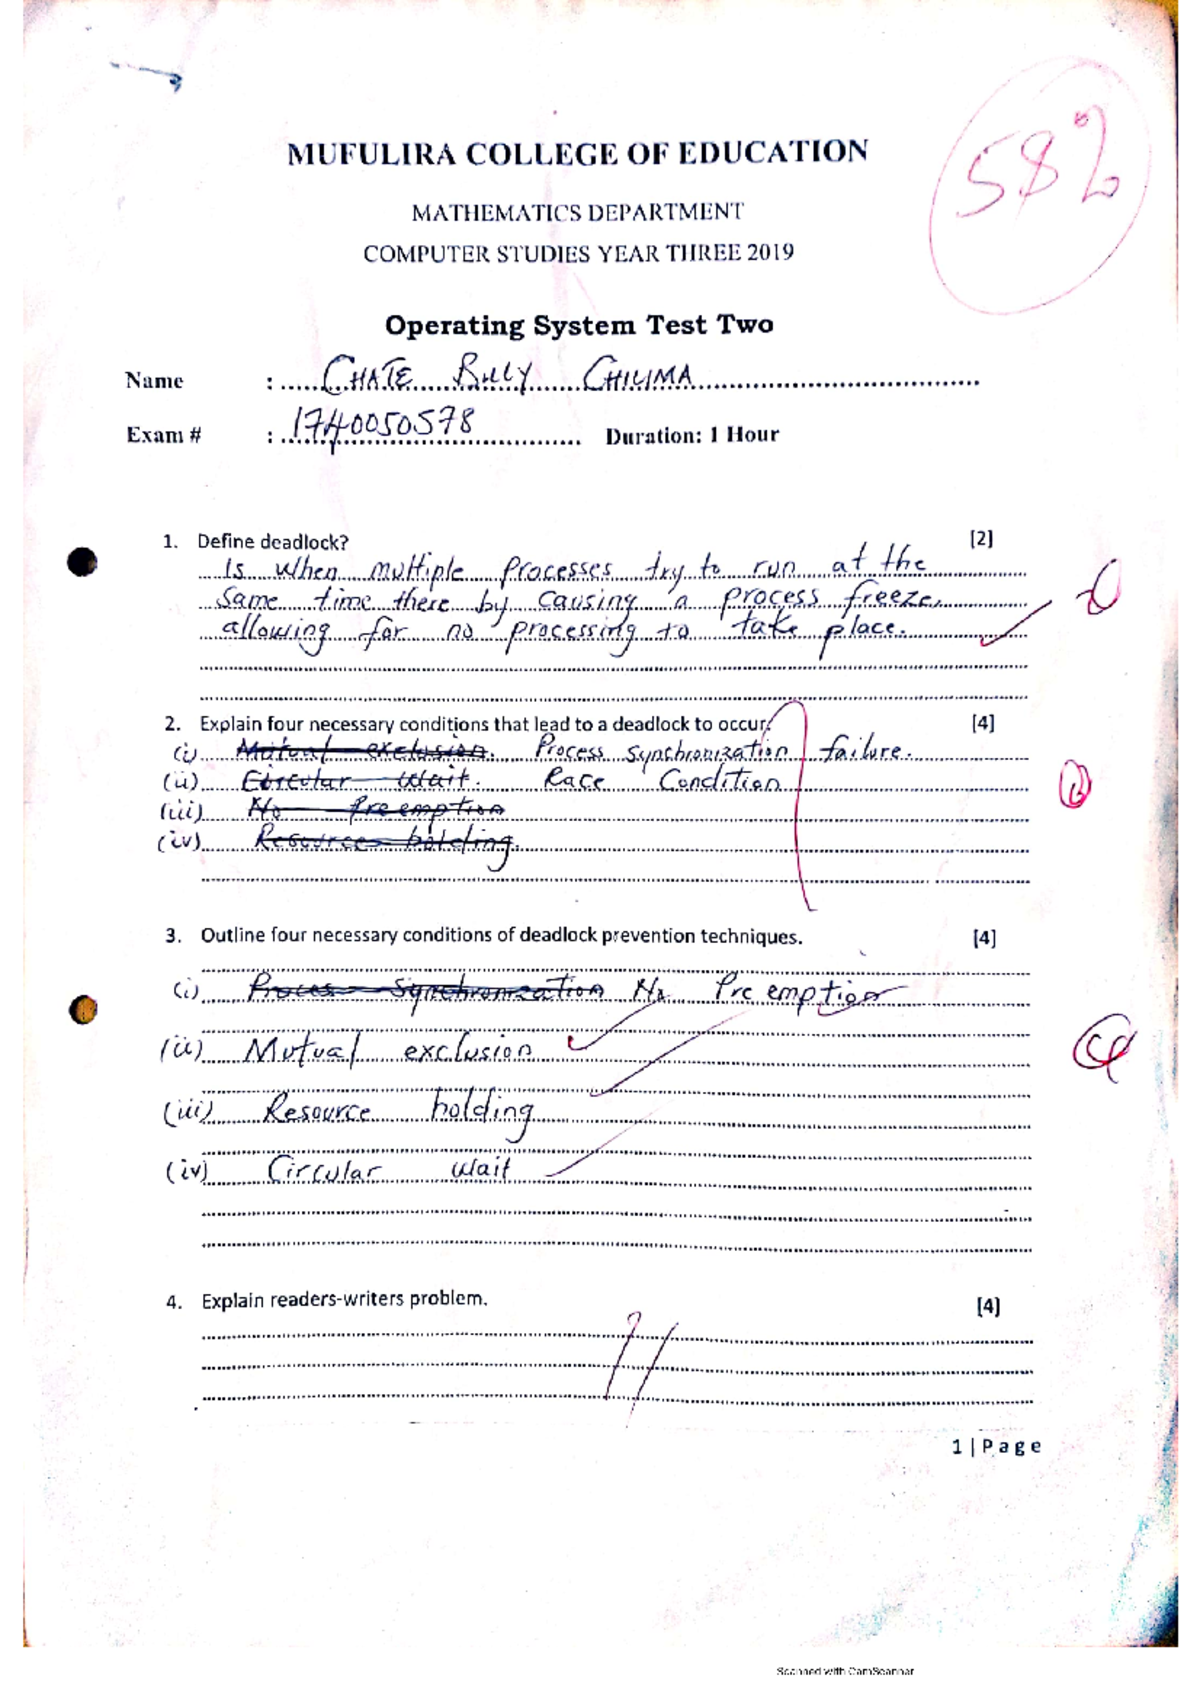 58%
MUFULIRA COLLEGE OF EDUCATION
MATHEMATICS DEPARTMENT
COMPUTER STUDIES YEAR THREE 2019
Operating System Test Two
Name : CHATE BILLY CHILIMA
Exam # : 1740050578 Duration: 1 Hour
1. Define deadlock? [2]
Is when multiple processes try to run at the
same time there by causing a process freeze,
allowing for no processing to take place.
2. Explain four necessary conditions that lead to a deadlock to occur. [4]
(i) Mutual exclusion. Process synchronization failure.
(ii) Circular wait. Race Condition
(iii) No Preemption
(iv) Resources holding.
3. Outline four necessary conditions of deadlock prevention techniques. [4]
(i) Process Synchronization No Pre emption
(ii) Mutual exclusion
(iii) Resource holding
(iv) Circular wait
4. Explain readers-writers problem. [4]
1 | Page
Scanned with CamScanner